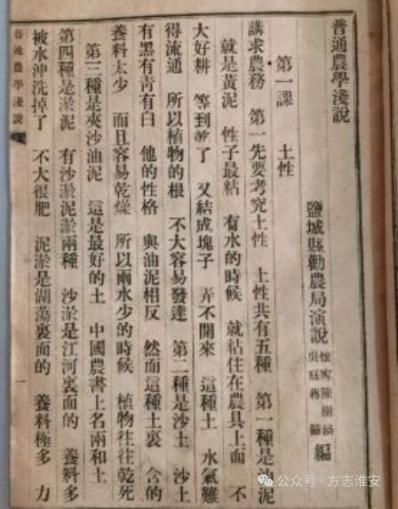 普通農學淺說
鹽城縣勸農局演說 懷寧陳樹涵 吳縣 編
第一課 土性
講求農務 第一先要考究土性 土性共有五種 第一種是油泥
就是黃泥 性子最粘 有水的時候 就粘住在農具上面 不
大好耕 等到乾了 又結成塊子 弄不開來 這種土 水氣難
得流通 所以植物的根 不大容易發達 第二種是沙土 沙土
有黑有青有白 他的性格 與油泥相反 然而這種土裏 含的
養料太少 而且容易乾燥 所以雨水少的時候 植物往往乾死
第三種是夾沙油泥 這是最好的土 中國農書上名兩和土
第四種是淤泥 有沙淤泥淤兩種 沙淤是江河裏面的 養料多
被水沖洗掉了 不大很肥 泥淤是湖蕩裏面的 養料極多 力
普通農學淺說
一
公众号·方志淮安